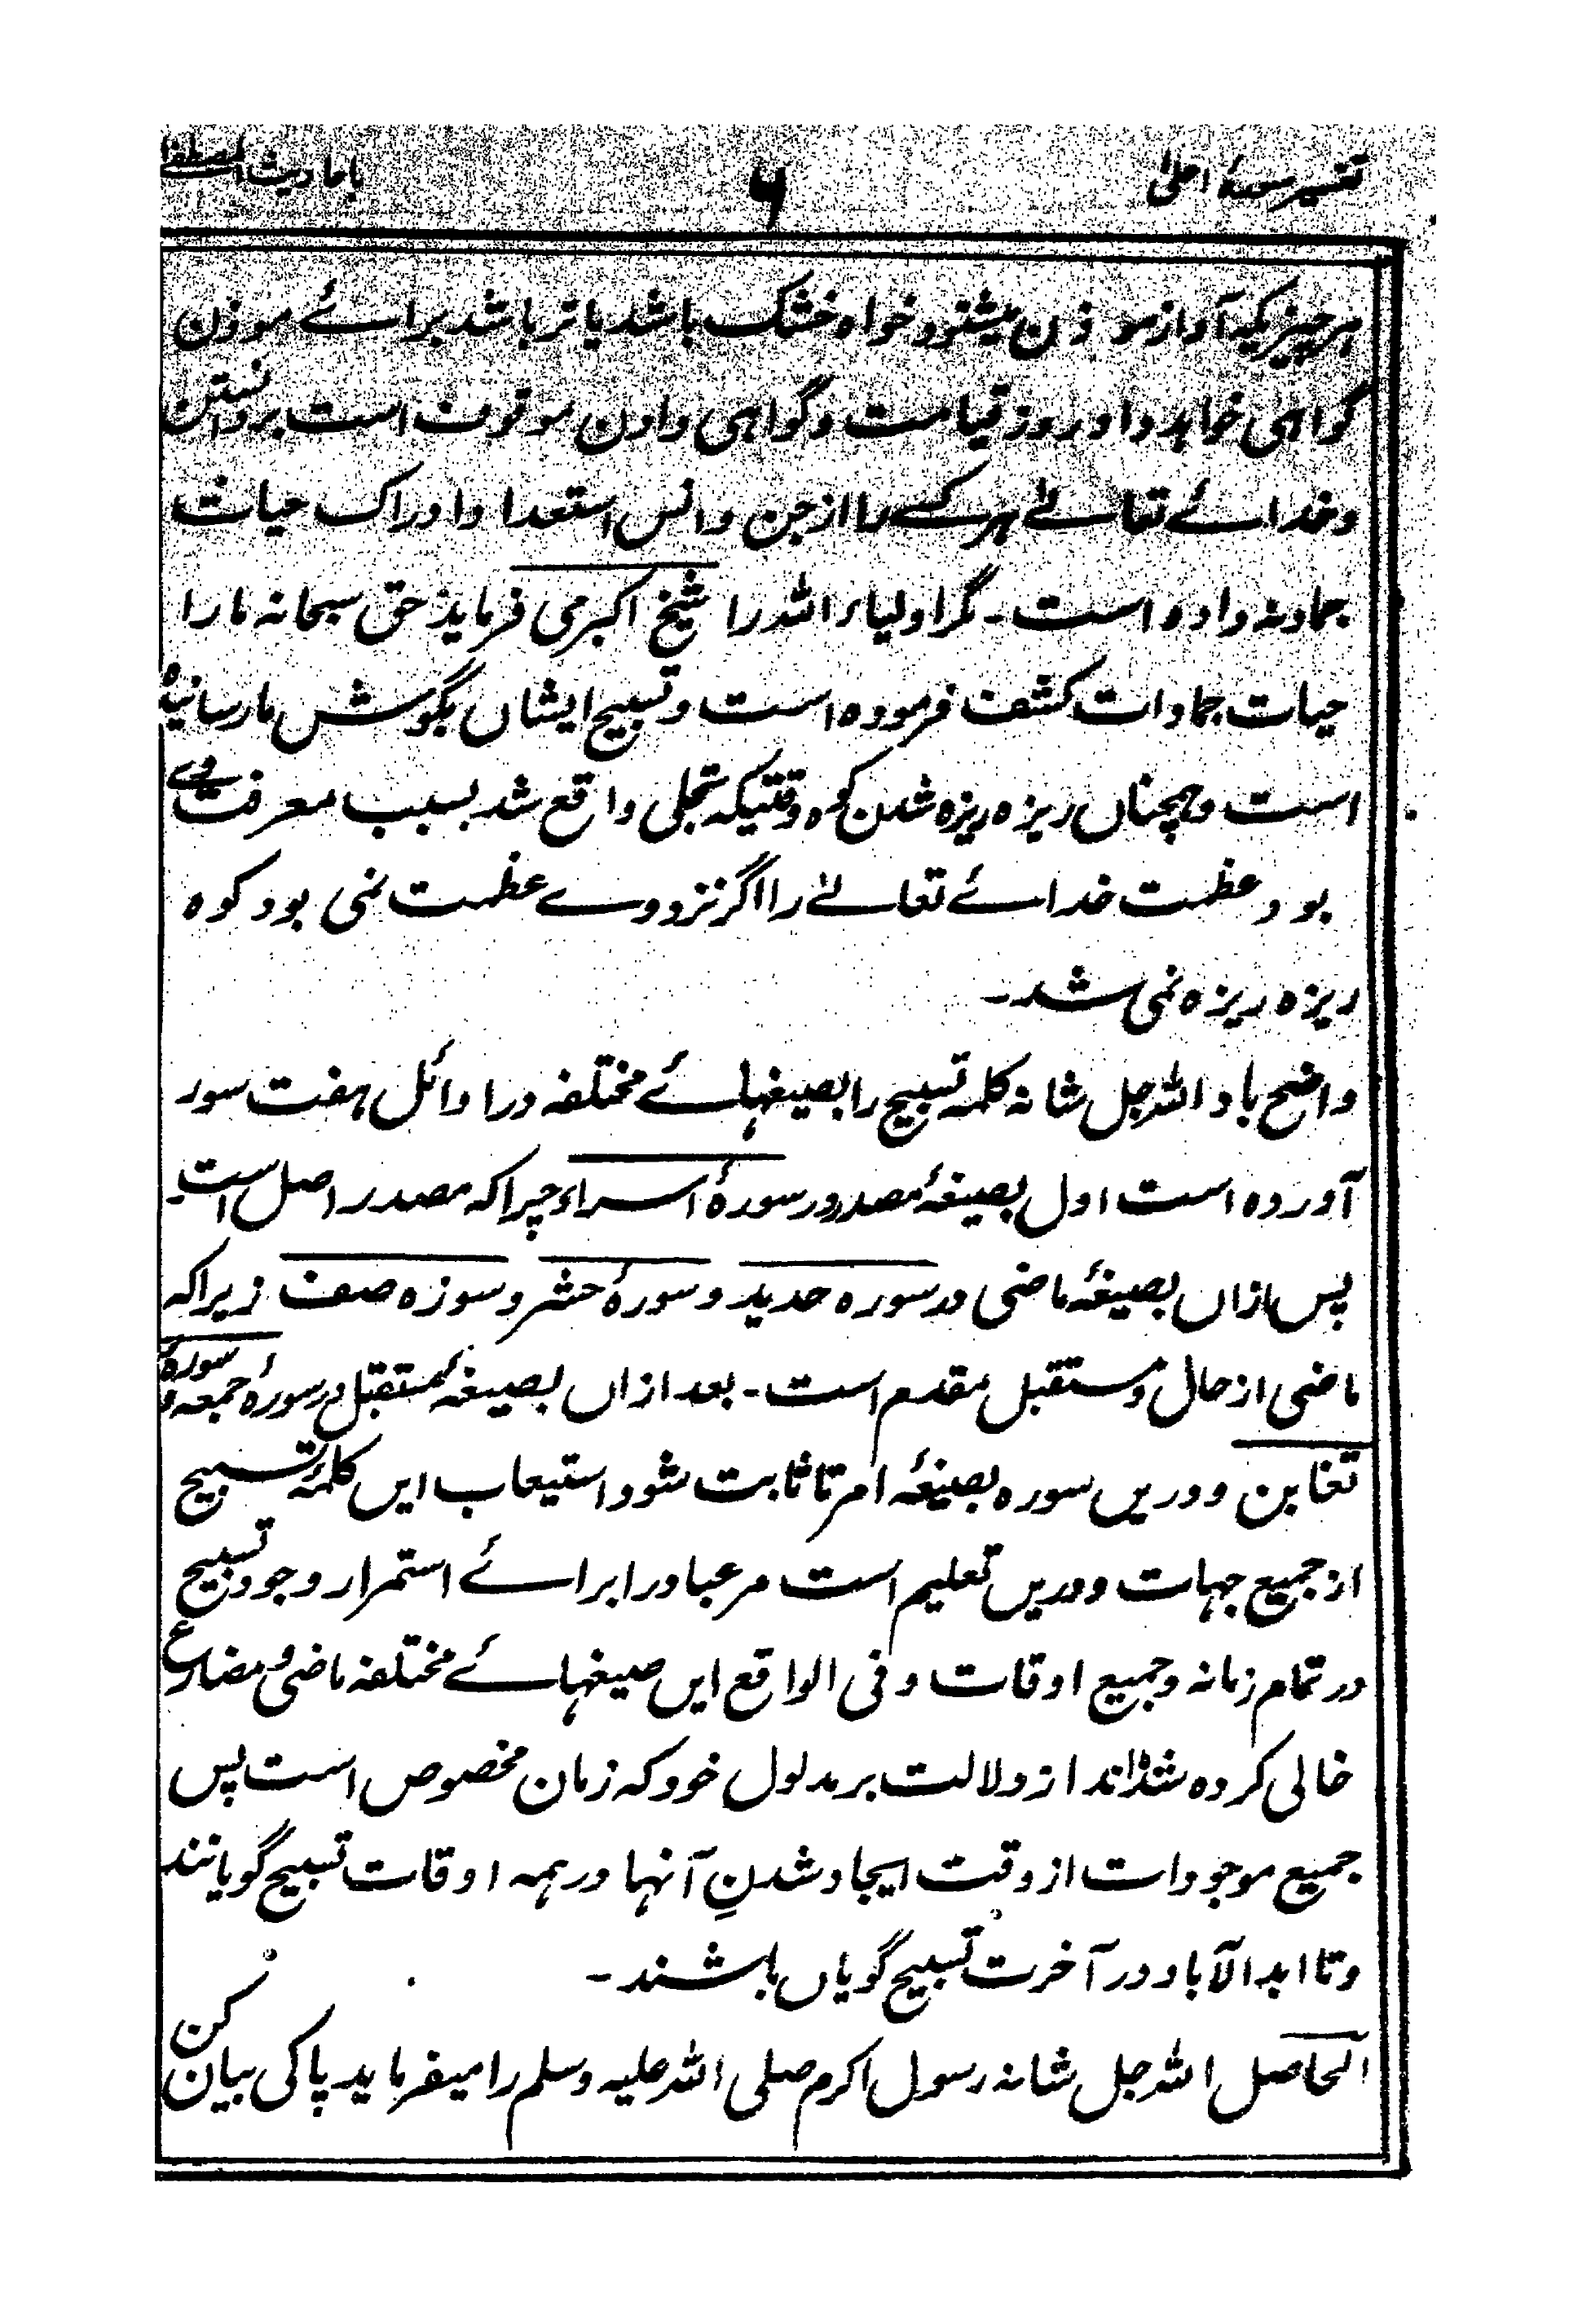 تفسیر سورهٔ اعلیٰ ۶ باحادیث المصطفےٰ
هر چیزیکه آواز موذن میشنود خواه خشک باشد یا تر باشد برائے موذن
گواهی خواہد داد روز قیامت و گواہی دادن موقوف است بر دانستن
و خدائے تعالےٰ ہر کسے را از جن و انس استعداد ادراک حیات
جماد نہ دادہ است۔ مگر اولیاء اللہ را شیخ اکبر می فرماید حق سبحانہ ما را
حیات جمادات کشف فرمودہ است و تسبیح ایشاں بگوش ما رسانیدہ
است و ہمچناں ریزہ ریزہ شدن کوہ وقتیکہ تجلی واقع شد بسبب معرفت وے
بود عظمت خدائے تعالےٰ را اگر نزد وے عظمت نمی بود کوہ
ریزہ ریزہ نمی شد۔
واضح باد اللہ جل شانہ کلمہ تسبیح را بصیغہائے مختلفہ در اوائل ہفت سور
آوردہ است اول بصیغۂ مصدر در سورۂ اسراء چراکہ مصدر اصل است۔
پس ازاں بصیغۂ ماضی در سورہ حدید و سورۂ حشر و سورہ صف زیراکہ
ماضی از حال و مستقبل مقدم است۔ بعد ازاں بصیغۂ مستقبل در سورۂ جمعہ و سورۂ
تغابن و دریں سورہ بصیغۂ امر تا ثابت شود استیعاب ایں کلمۂ تسبیح
از جمیع جہات و دریں تعلیم است مر عباد را برائے استمرار وجود تسبیح
در تمام زمانہ و جمیع اوقات و فی الواقع ایں صیغہائے مختلفہ ماضی و مضارع
خالی کردہ شدہ اند از دلالت بر مدلول خود کہ زمان مخصوص است پس
جمیع موجودات از وقت ایجاد شدنِ آنہا در ہمہ اوقات تسبیح گویانند
و تا ابد الآباد در آخرت تسبیح گویاں باشند۔
الحاصل اللہ جل شانہ رسول اکرم صلی اللہ علیہ وسلم را میفرماید پاکی بیان کن